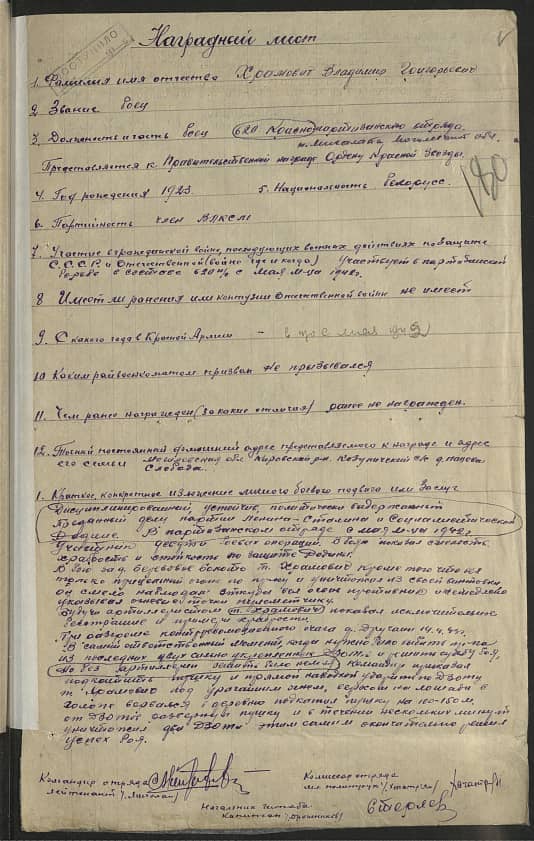 ПОСТУПИЛО
Наградной лист
1. Фамилия имя отчество Храмович Владимир Григорьевич
2. Звание боец
3. Должность и часть боец 620 Краснопартизанского отряда
Могилевской обл.
Представляется к Правительственной награде Ордену Красной Звезды
180
4. Год рождения 1923. 5. Национальность белорусс.
6. Партийность член ВЛКСМ
7. Участие в гражданской войне, последующих военных действиях по защите
С.С.С.Р. и Отечественной (войне где и когда) Участвует в партизанской
борьбе в составе 620 п/о с мая м-ца 1942 г.
8 Имеет ли ранения или контузии Отечественной войны не имеет
9. С какого года в Красной Армии - в мая
10 Каким райвоенкоматом призван Не призывался
11. Чем ранее награжден (за какие отличия) ранее не награжден.
12. Точный постоянный домашний адрес представляемого к награде и адрес
его семьи Могилевская обл. Кировский р-н. Козуличский с/с д.
Слобода.
1. Краткое, конкретное изложение личного боевого подвига или заслуг
Дисциплинированный, устойчив, политически выдержанный
преданный делу партии Ленина-Сталина и Социалистической
Родине. В партизанском отряде с мая м-ца 1942 г.
Участник десяти боевых операций. В боях показал смелость,
храбрость и стойкость по защите Родины.
В бою за д. Березовое болото т. Храмович кроме того что вел
только прицельный огонь по врагу и уничтожал из своей винтовки
он смело наблюдал откуда вел огонь противник и немедленно
указывал огневые точки
Будучи артиллеристом т. Храмович показал исключительное
бесстрашие и примеры храбрости.
При разгроме контрреволюционного очага д. Другами 14.4.43 г.
В самый ответственный момент, когда нужно было выбить пр-ка
из последних двух сильно укрепленных ДЗОТов и решить судьбу боя,
Но без артиллерии занять было нельзя, командир приказал
подкатить пушку и прямой наводкой ударить по ДЗОТу
т. Храмович под ураганным огнем, верхом на лошади в
галопе ворвался и дословно подкатил пушку на 100-150 м,
от ДЗОТа развернул пушку и в течении нескольких минут
уничтожил два ДЗОТа этим самым окончательно решил
успех боя.
Командир отряда Комиссар отряда
лейтенант мл. политрук
Начальник штаба
капитан